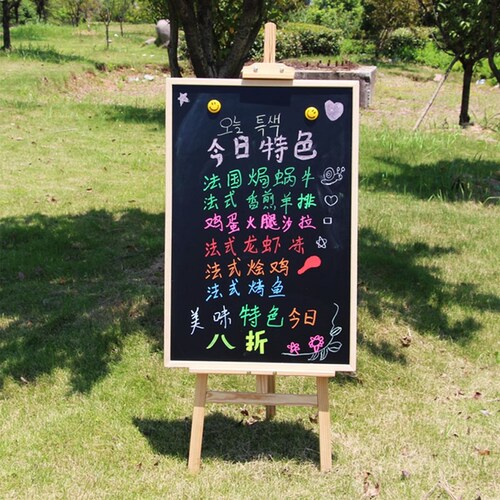 오늘 특색
今日特色
法国焗蜗牛
法式香煎羊排
鸡蛋火腿沙拉
法式龙虾冻
法式烩鸡
法式烤鱼
美味特色今日
八折